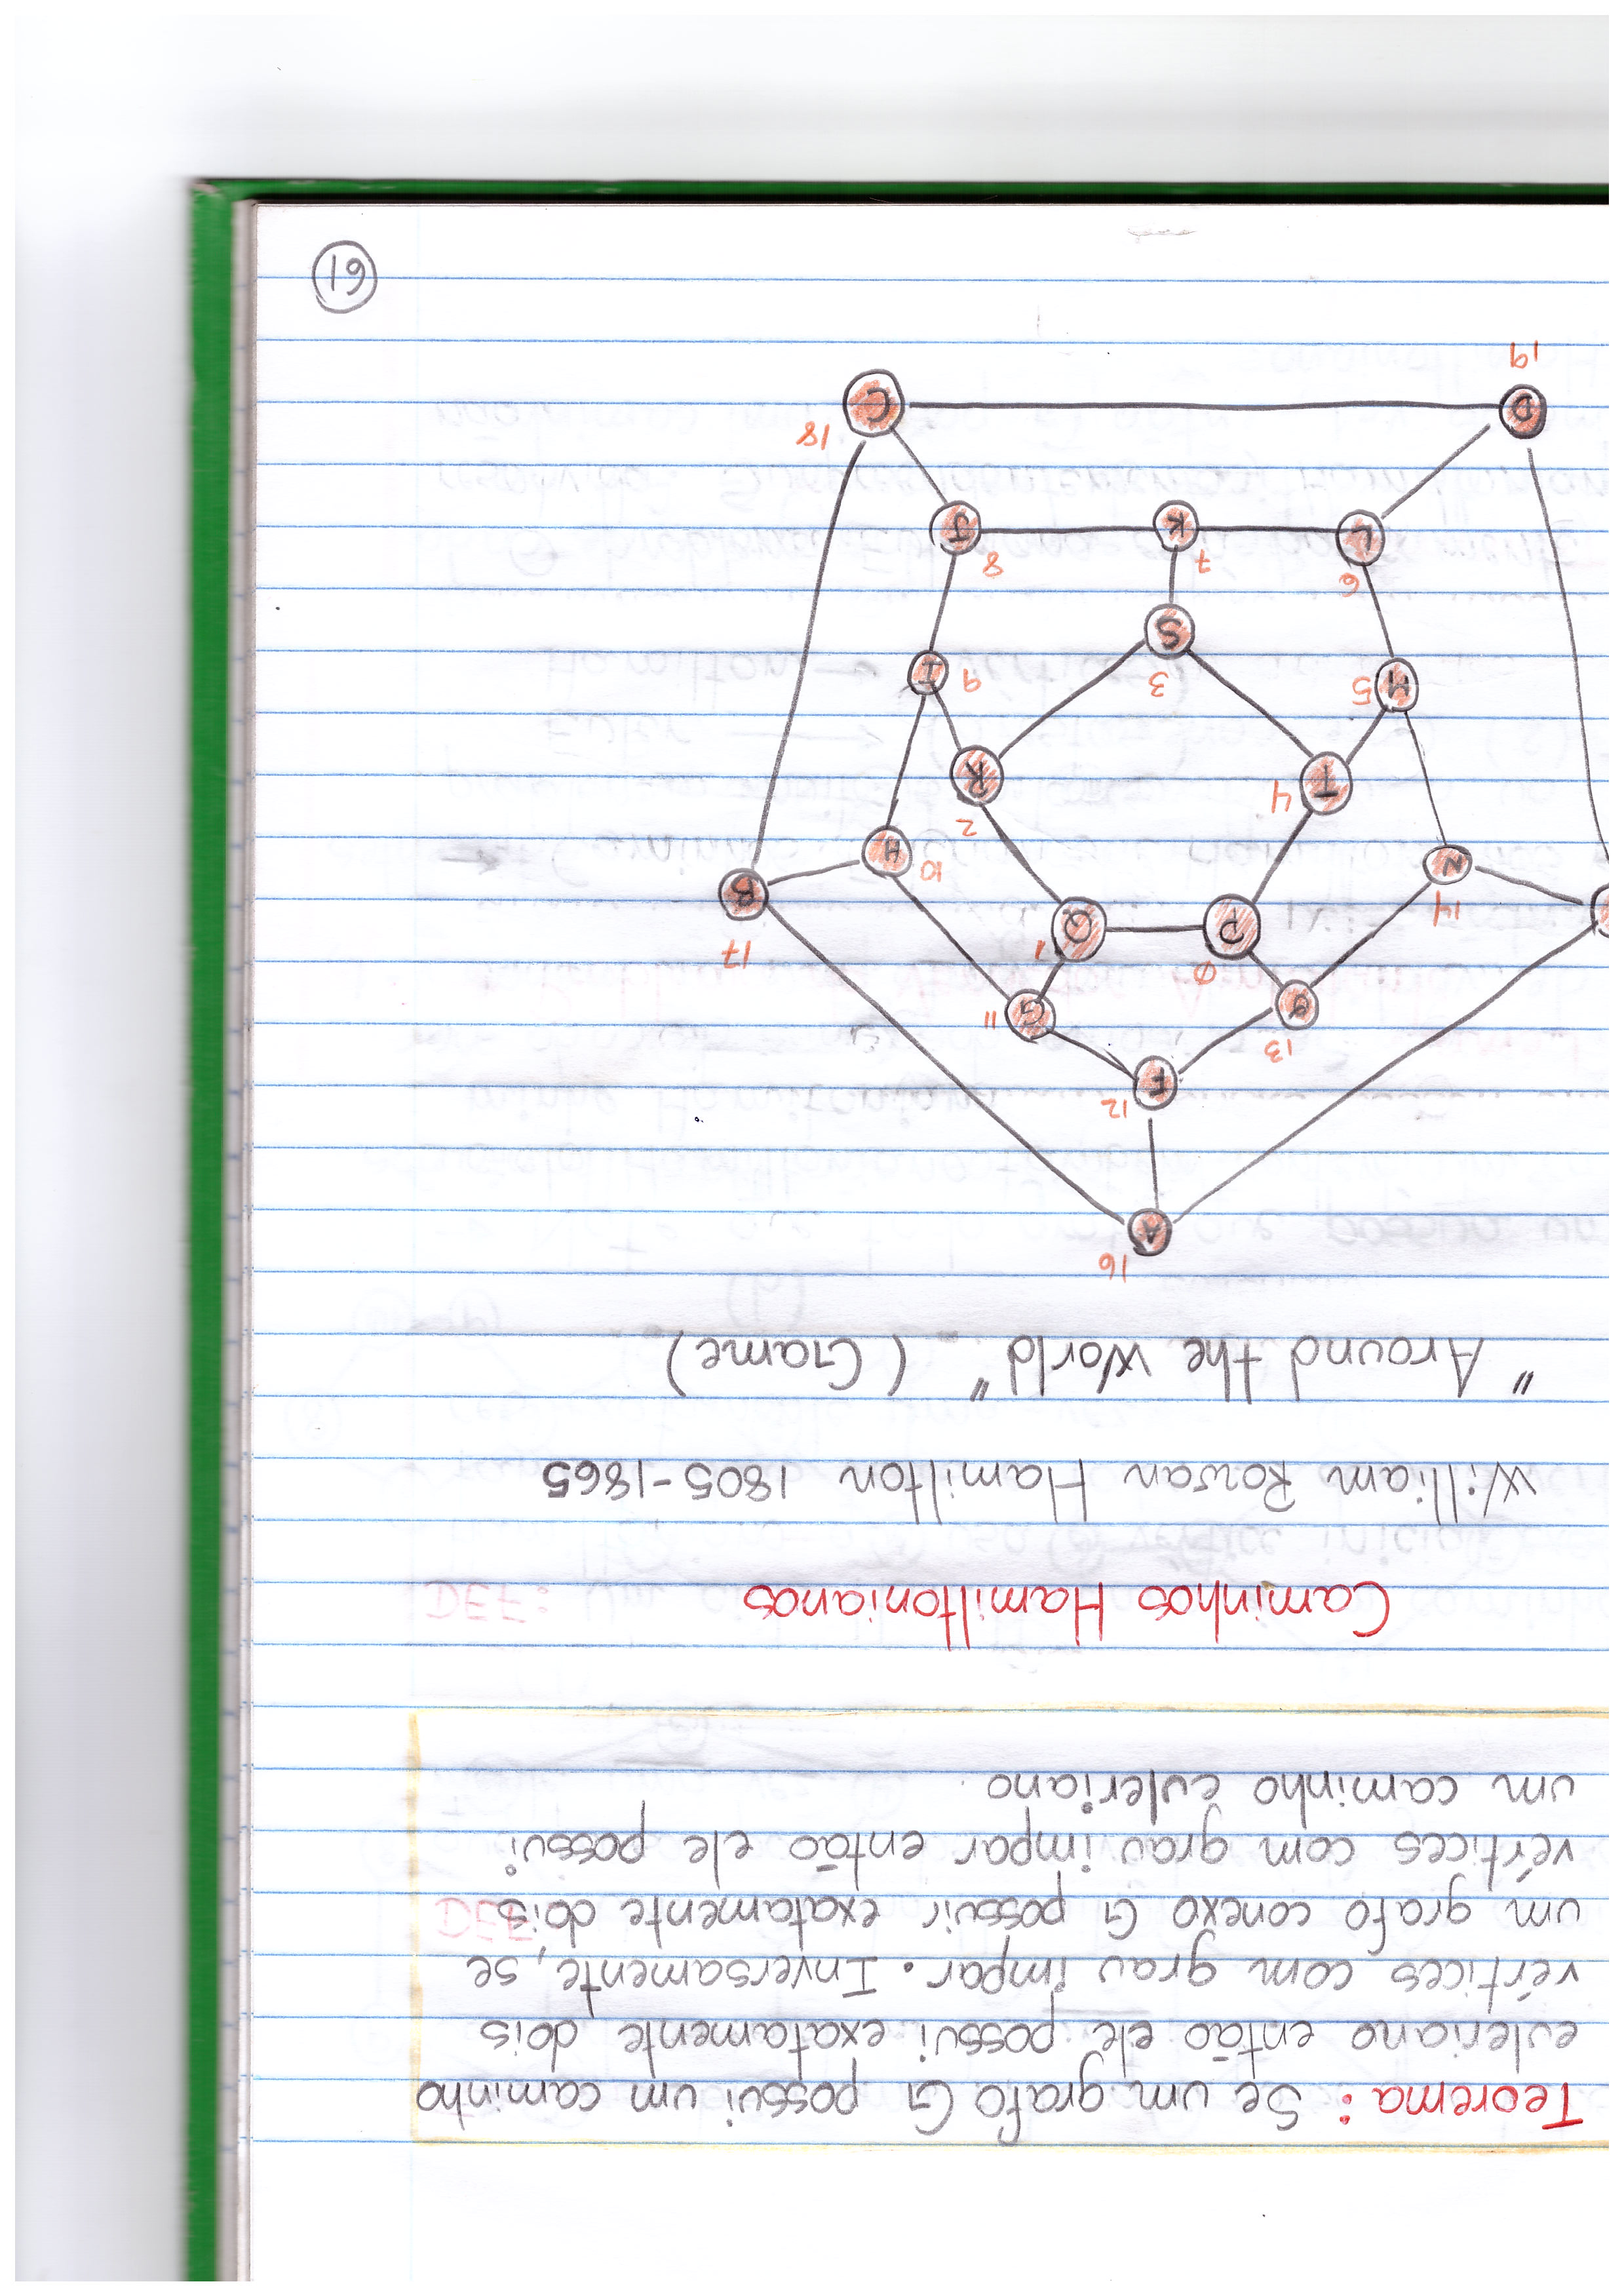 Teorema: Se um grafo G possui um caminho
euleriano então ele possui exatamente dois
vértices com grau ímpar. Inversamente, se
um grafo conexo G possuir exatamente dois
vértices com grau impar então ele possui
um caminho euleriano.
Caminhos Hamiltonianos
William Rowan Hamilton 1805-1865
"Around the World" (Game)
16
A
12
F
13
O
G 11
Ø
P
1
Q
17
B
14
N
10
H
2
T 4
R
M 5
3
9 I
S
6
L
7
K
8
J
D
18
C
19
61